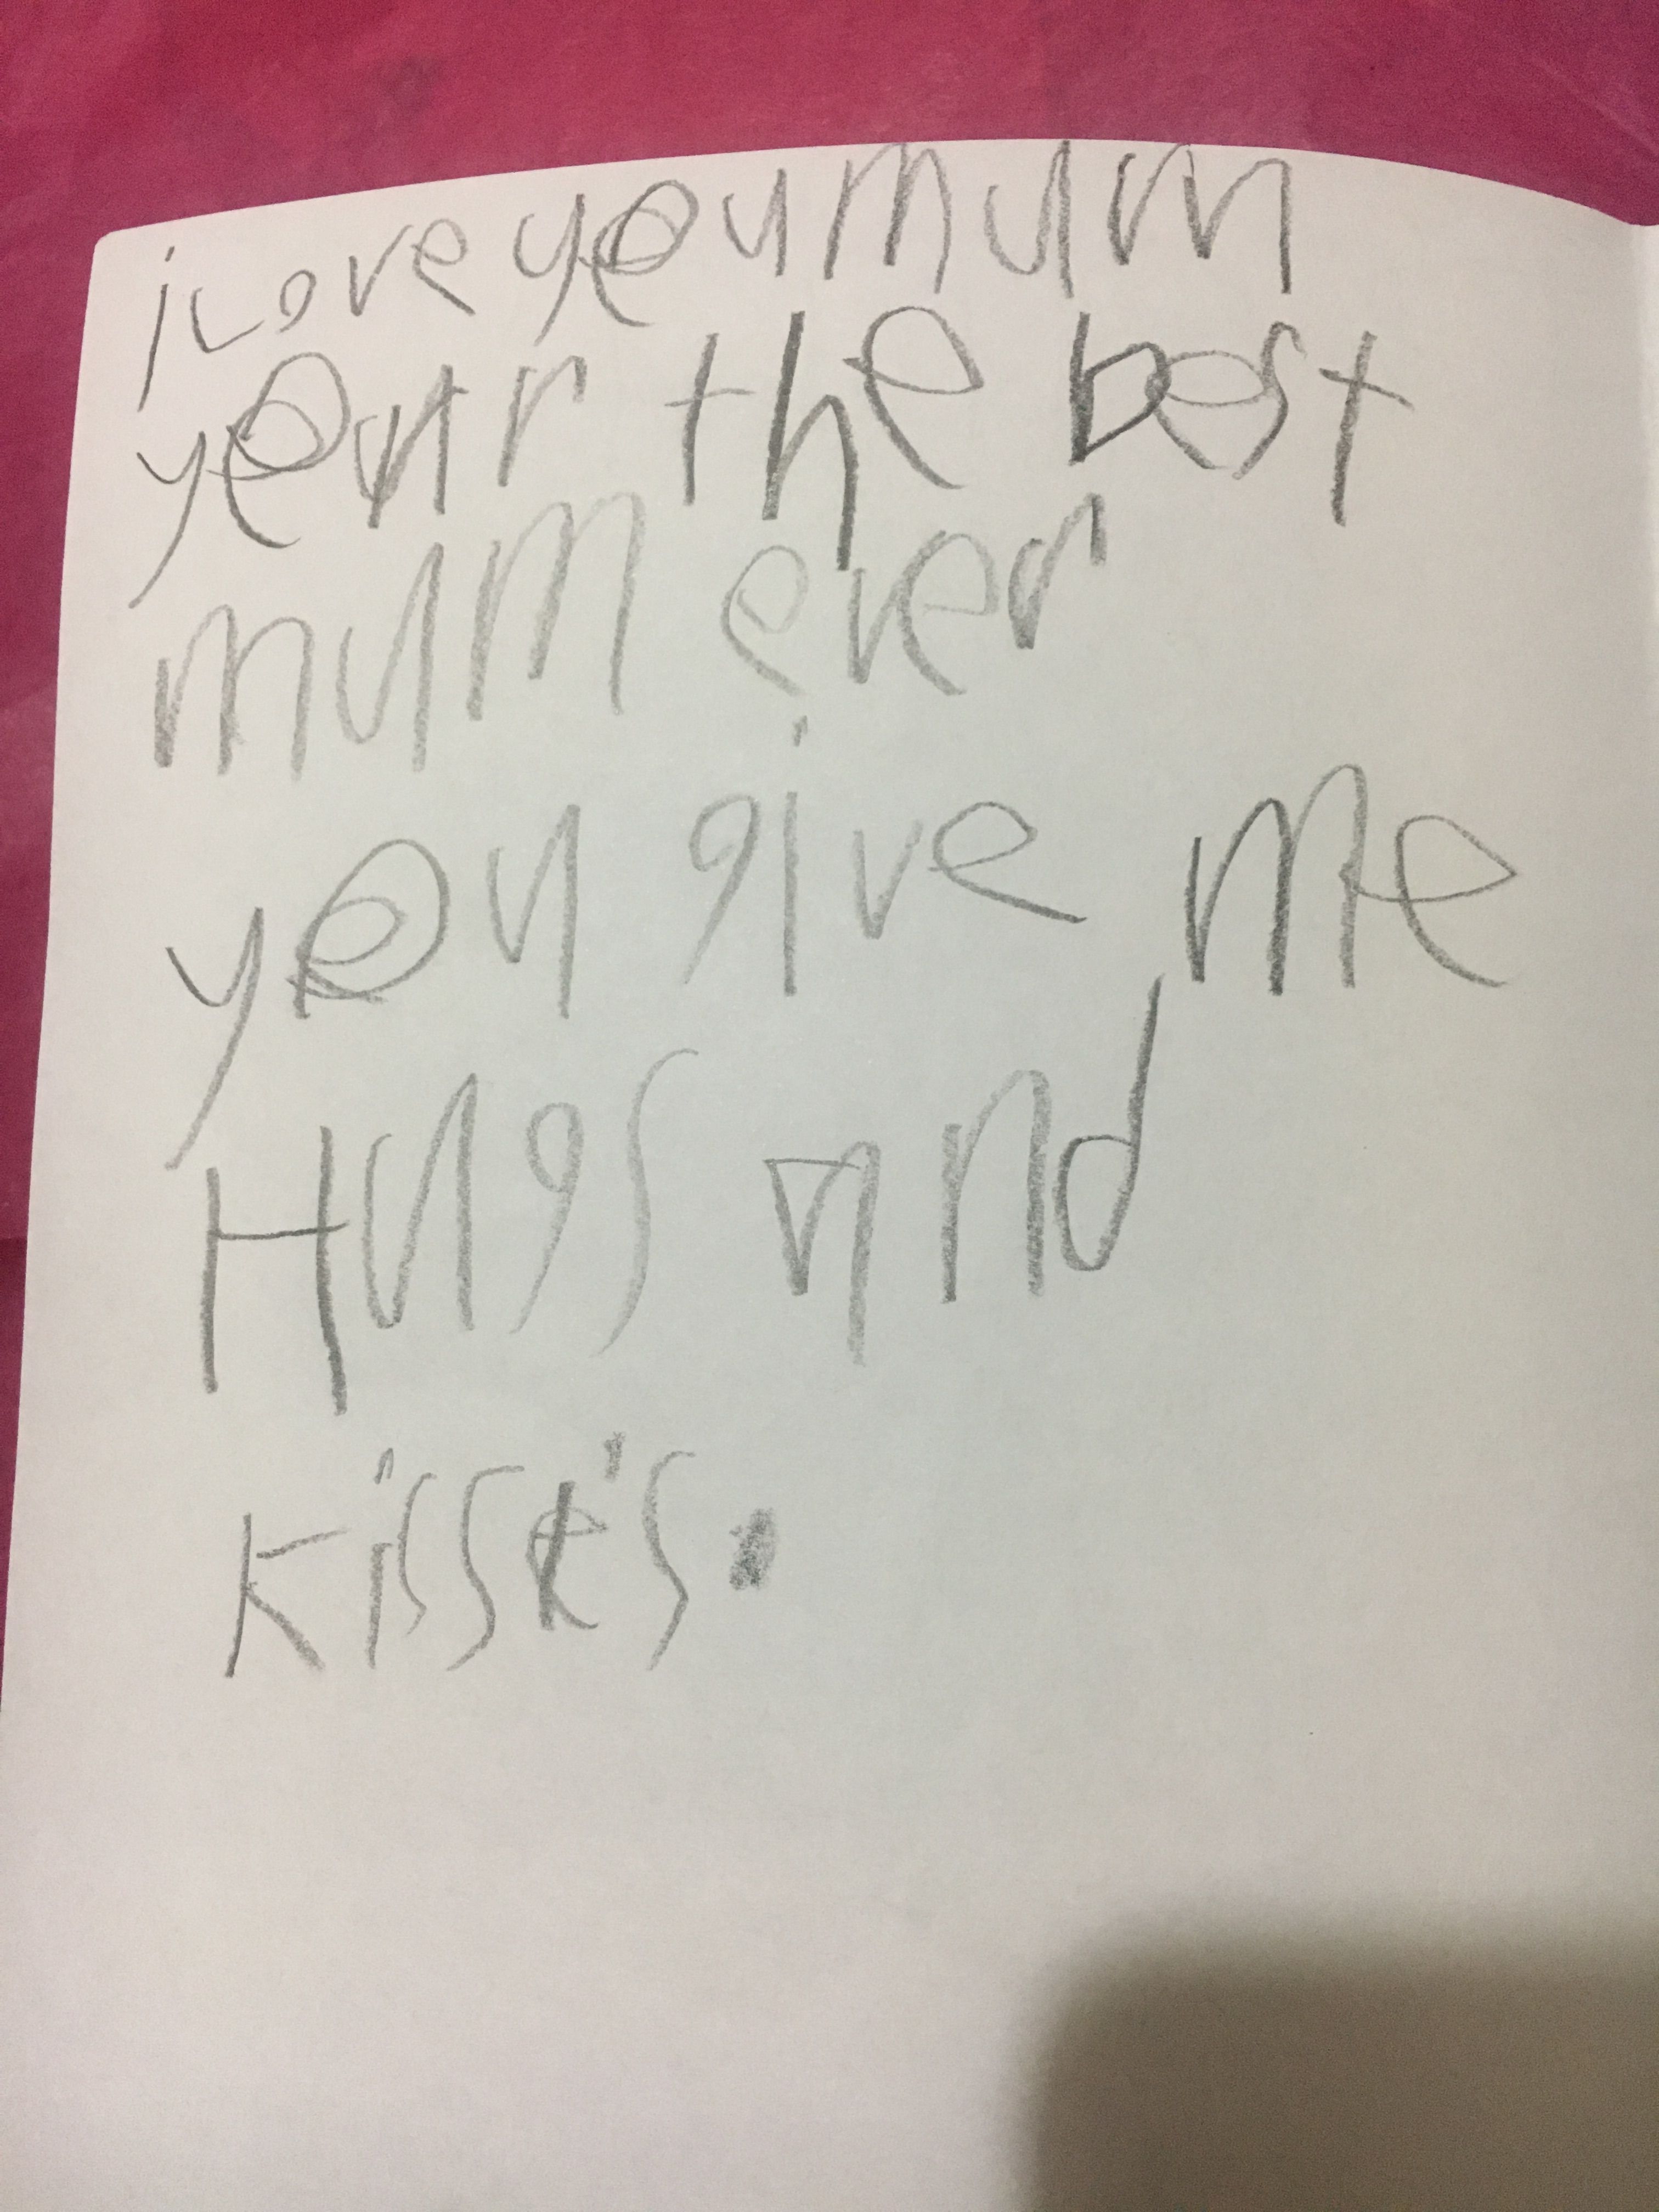 i Love yeou mum
yeour the best
mum ever
yeou give me
Hugs and
kisse's.